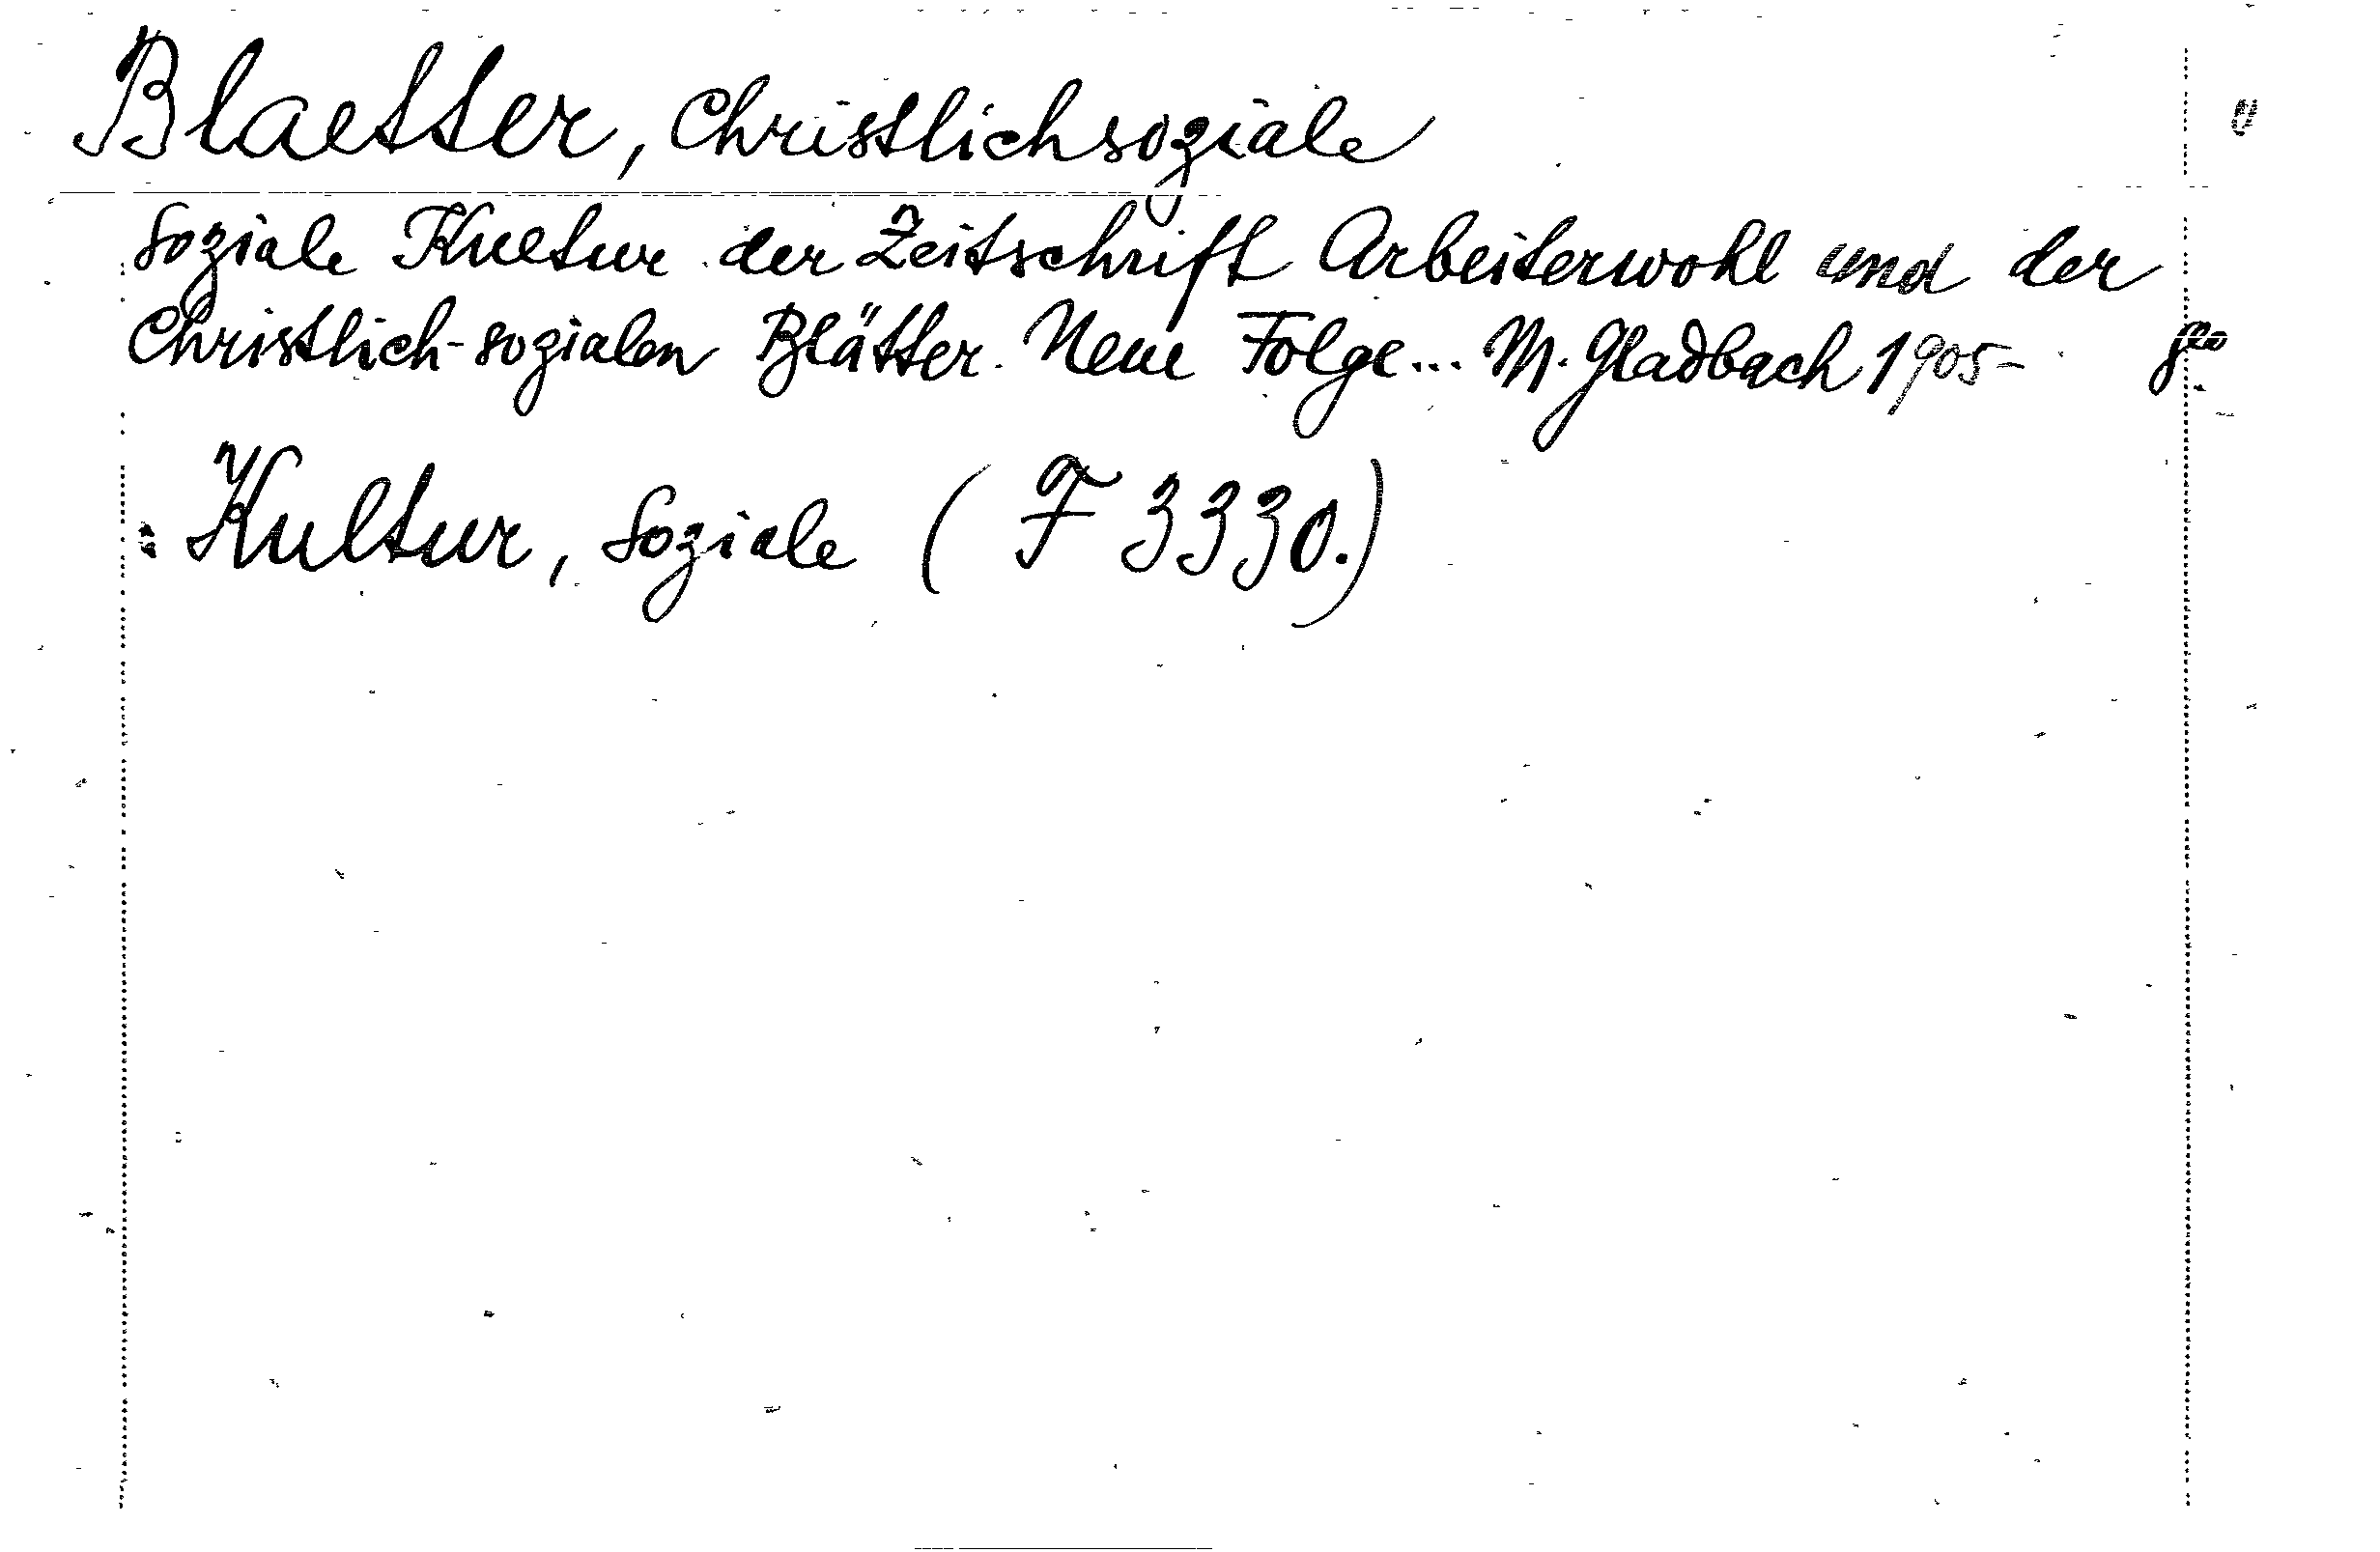 Blaetter, Christlichsoziale
Soziale Kultur der Zeitschrift Arbeiterwohl und der
Christlich-sozialen Blätter. Neue Folge... M. Gladbach 1905-
: Kultur, Soziale (F 3330.)